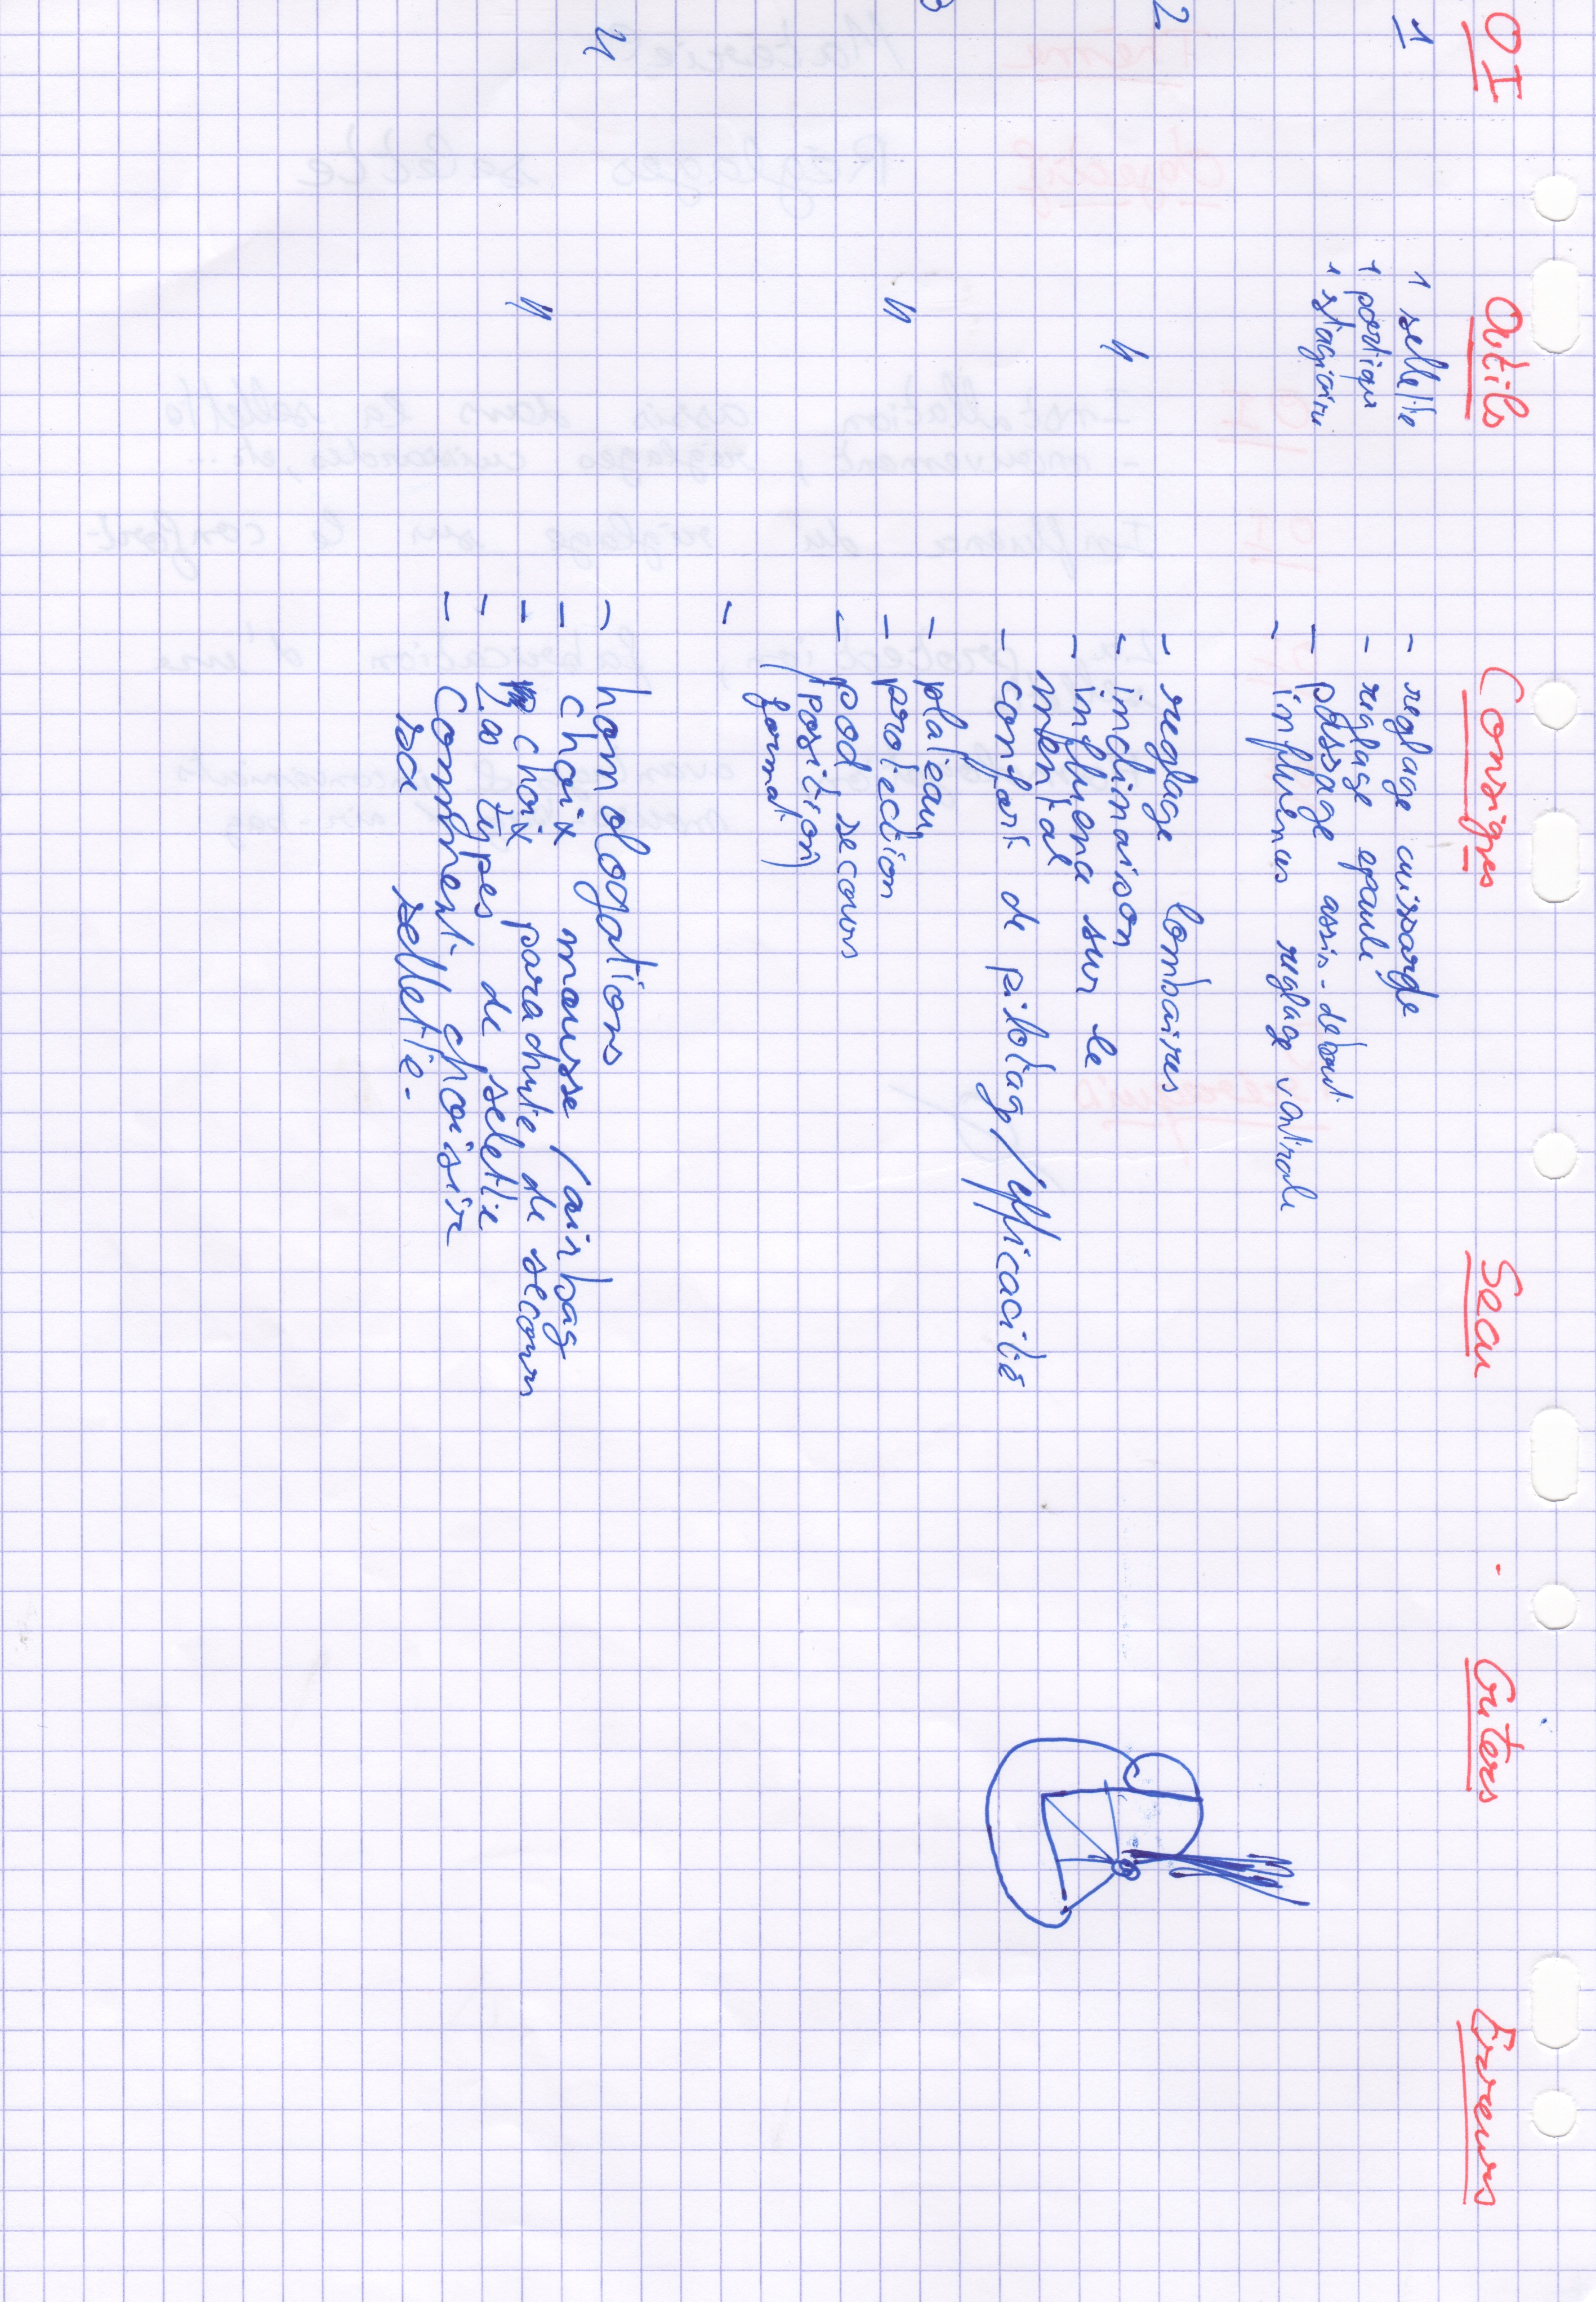 OI Outils Consignes Secu Criteres Erreurs
1
1 sellette
1 portique
1 stagiaire
- reglage cuissarde
- reglage epaule
- passage assis-debout
- influences reglage ventrale
2
"
- reglage lombaires
- inclinaison
- influence sur le
mental
- confort de pilotage/efficacité
3
"
- plateau
- protection
- pod secours
(position)
format
-
4
"
- homologations
- choix mousse/airbag
- choix parachute de secours
- Les types de selette
- Comment choisir
sa sellette.